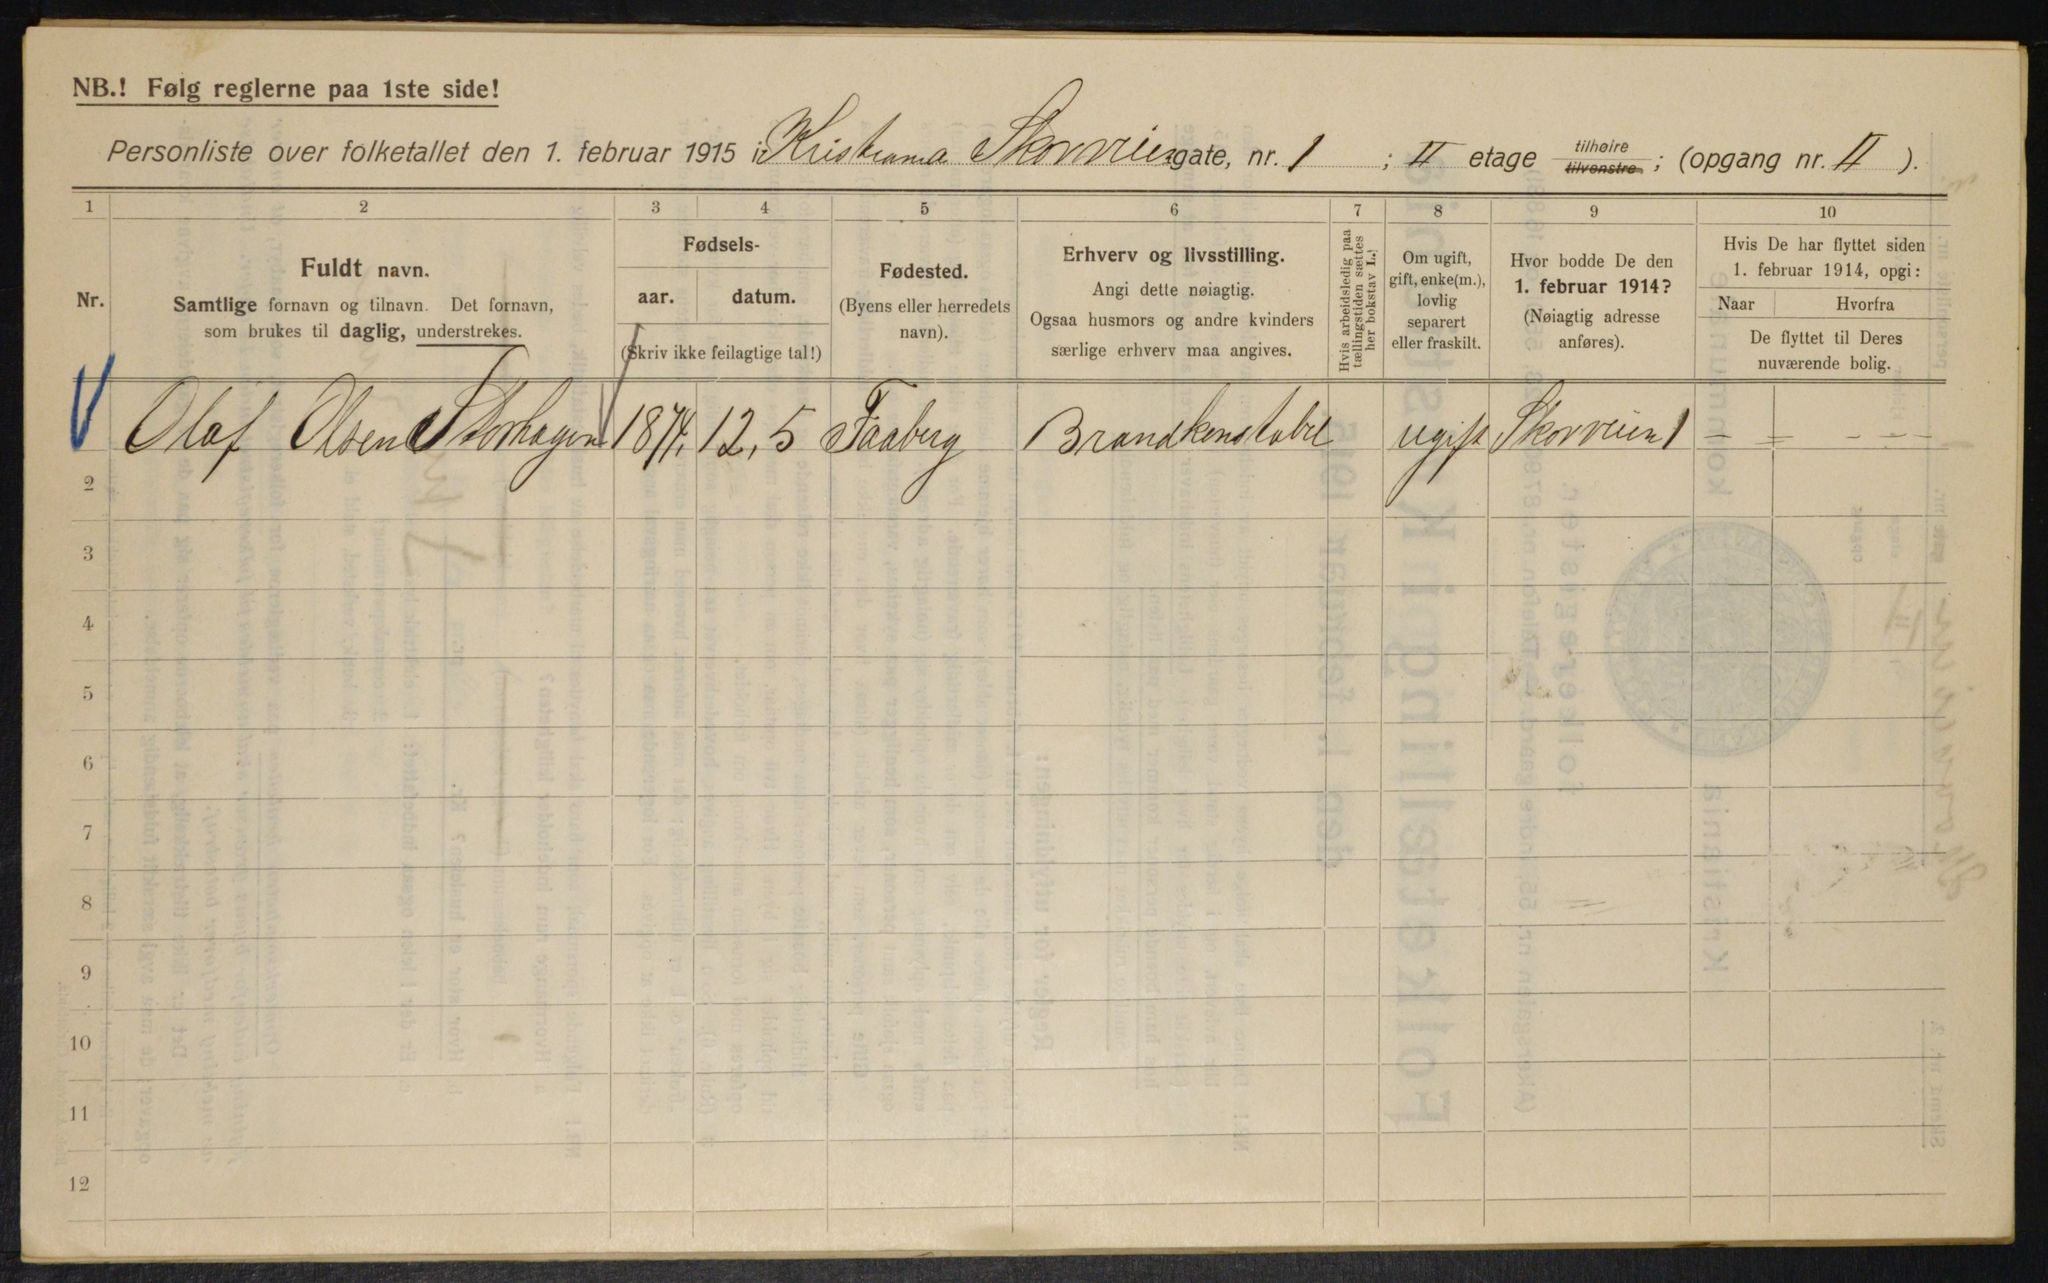 NB.! Følg reglerne paa 1ste side!
Personliste over folketallet den 1. februar 1915 i: Kristiania Skovveien gate, nr. 1 ; II etage tilhøire tilvenstre ; (opgang nr. II ).
1 2 3 4 5 6 7 8 9 10
Nr.
Fuldt navn.
Samtlige fornavn og tilnavn. Det fornavn,
som brukes til daglig, understrekes.
Fødsels-
aar. datum.
(Skriv ikke feilagtige tal!)
Fødested.
(Byens eller herredets
navn).
Erhverv og livsstilling.
Angi dette nøiagtig.
Ogsaa husmors og andre kvinders
særlige erhverv maa angives.
Hvis arbeidsledig paa
tællingstiden sættes
her bokstav L.!
Om ugift,
gift, enke(m.),
lovlig
separert
eller fraskilt.
Hvor bodde De den
1. februar 1914?
(Nøiagtig adresse
anføres).
Hvis De har flyttet siden
1. februar 1914, opgi:
Naar Hvorfra
De flyttet til Deres
nuværende bolig.
Olaf Olsen Storhagen 1874. 12, 5 Faaberg Brandkonstabel ugift Skovveien 1 – – – –
2
3
4
5
6
7
8
9
10
11
12